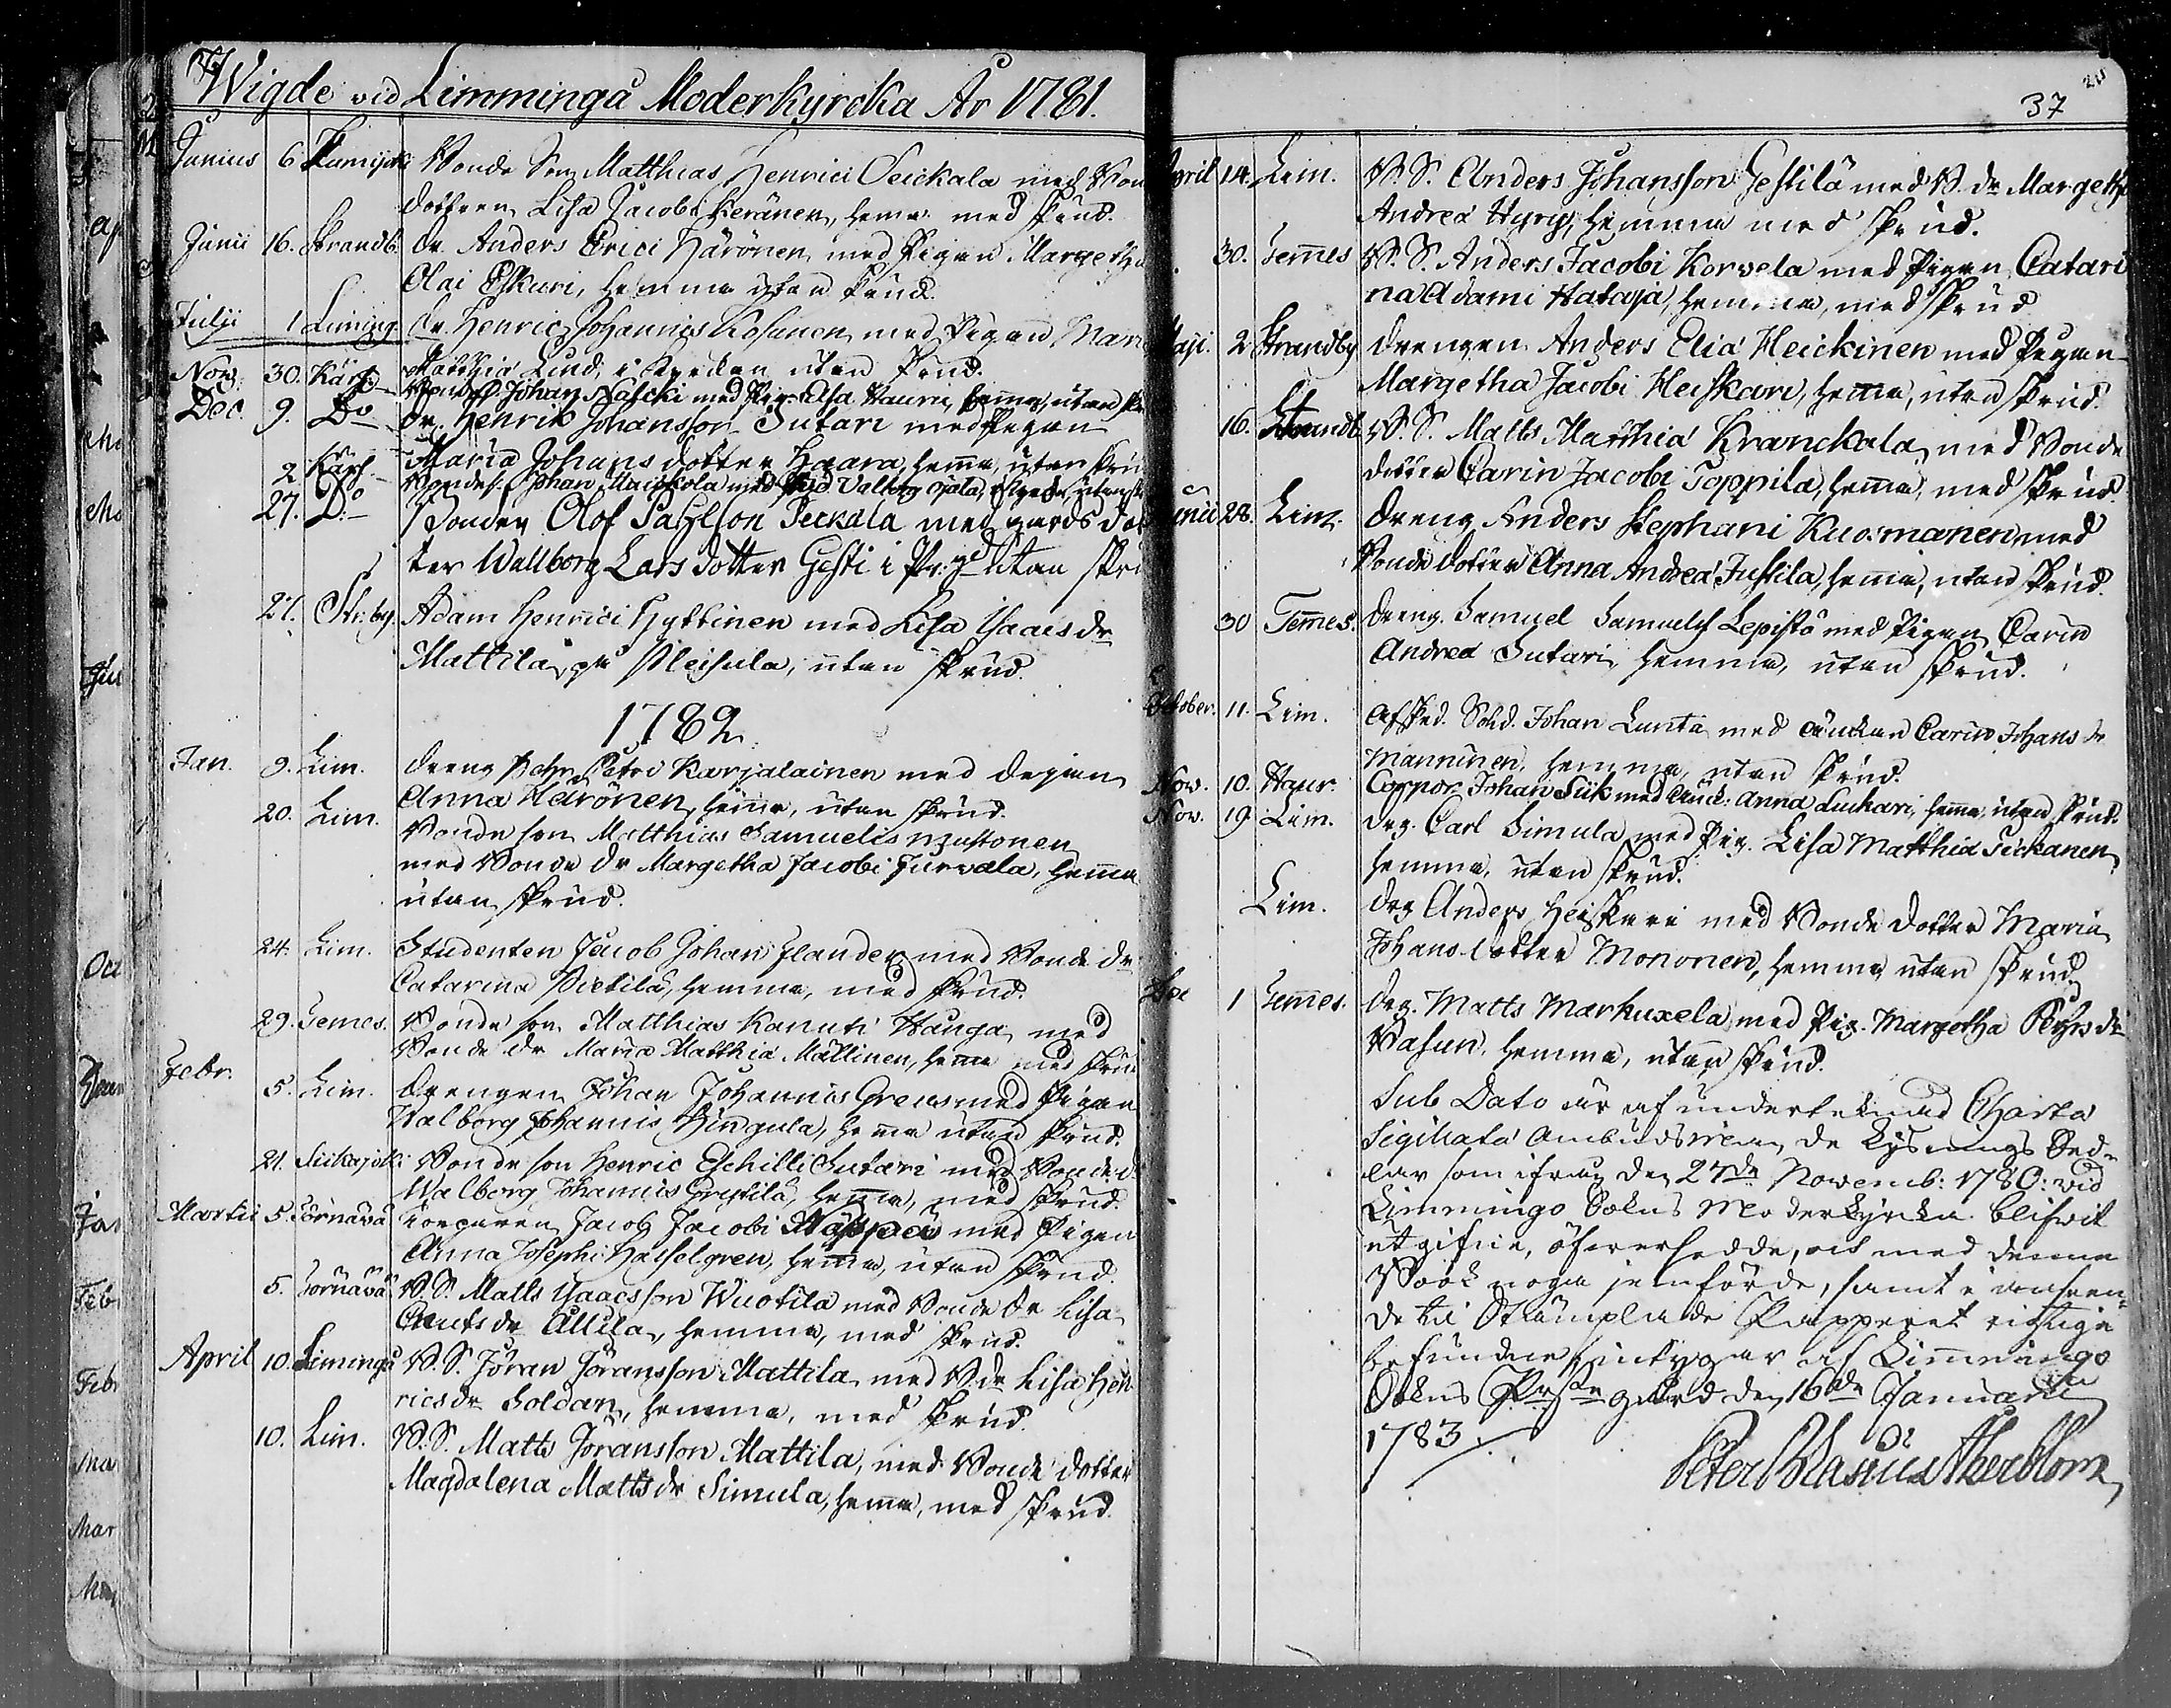 36
Wigde vid Limmingå Moderkyrcka År 1781.
Junius 6 Bonde Son Matthias Henrici Seickala med Bon
dotteren Lisa Jacobi Keränen, hema med skrud.
Junii 16. Strandb. Dr. Anders Erici Härönen med Pigan Margetha
Olai Eskuri, hemma utan skrud.
Julii 1 Liming. Dr. Henric Johannis Kosunen med Pigan Mar
Matthiæ Lind, i Kyrckan utan skrud.
Nov. 30. Kärs. Bondes. Johan Nascki med Pig. Elsa Hauru, hemma, utan
Dec. 9. Do Dr. Henrik Johansson Sutari med Pigan
Maria Johans dotter Haara, hema, utan skru
2 Kärs. Bondes. Johan Maickola med Valborg Ojala
27. Do Bonden Olof Påhlson Peckala med gårds dot
ter Wallborg Lars dotter Gesti i Pr:gd utan skru
27. Str:by. Adam Henrici Hyttinen med Lisa Isaacs dr
Mattila på Pleisula, utan skrud.
1782.
Jan. 9. Lim. Dreng Pehr Petri Karjalainen med Pigan
Anna Härönen, hema, utan skrud.
20. Lim. Bonde son Matthias Samuelis Mustonen
med Bonde dr Margetha Jacobi Jurvala, hemma
utan skrud.
24. Lim. Studenten Jacob Johan Flander med Bonde dr
Catarina Pietilä, hemma, med skrud.
29. Temes. Bonde son Matthias Kanuti Hauga med
Bonde dr Maria Matthiæ Mällinen, hema med skrud
Febr. 5. Lim. Drengen Johan Johannis Grens med Pigan
Valborg Johannis Hingula, hema utan skrud.
21. Siikajoki Bonde son Henric Eschilli Sutari med Bonde d
Walborg Johannis Grystilä, hema, med skrud.
Martii 5. Törnävä Jacob Jacobi Näppä med Pigan
Anna Josephi Hasselgren, hema, utan skrud.
5. Törnävä B. S. Matts Isaacsson Wuotila med Bonde dr Lisa
Cnuts dr Allila, hemma, med skrud.
April 10. Limingå B. S. Jöran Jöransson Mattila med B. dr Lisa Hen
rics dr Soldan, hemma, med skrud.
10. Lim. B. S. Matts Jöransson Mattila, med Bonde dotter
Magdalena Matts dr Simula, hema, med skrud.
37
April 14. Lim. B. S. Anders Johansson Gestilä med B. dr Margetha
Andreæ Hyry, hemma med skrud.
30. Temes B. S. Anders Jacobi Korvela med Pigan Catari
na Adami Hataja, hemma, med skrud
Maji. 2 Strandby Drengen Anders Eliæ Heickinen med Pigan
Margetha Jacobi Heiskari, hema, utan skrud.
16. Strandb. B. S. Matts Matthiæ Kranckala med Bonde
dotter Carin Jacobi Toppila, hema, med skrud
Junii 28. Lim. Dreng Anders Stephani Kuosmanen med
Bonde dotter Anna Andreæ Jussila, hema, utan skrud.
30 Temmes. Dreng. Samuel Samuels. Lepistö med Pigan Carin
Andreæ Sutari, hemma, utan skrud.
October. 11. Lim. Afsked. Sold. Johan Lunta med änckan Carin Johans dr
Manninen, hemma, utan skrud.
Nov. 10. Haur. Corpor. Johan Siik med Enck: Anna Luckari, hema, utan skrud.
Nov. 19. Lim. Drg. Carl Simula med Pig. Lisa Matthiæ Sickanen,
hemma, utan skrud.
Lim. Drg Anders Heiskari med Bonde dotter Maria
Johans dotter Mononen, hemma utan skrud
Dec 1 Temmes. Drg. Matts Markuxela med Pig. Margetha Pehrs dr
Vasun, hemma, utan skrud.
Sub Dato är af undertecknad Charta
Sigillata Ambudsmän de Lysnings Sed-
lar som ifrån den 27de Novemb: 1780: vid
Limmingo Sokns Moderkyrcka blifvit
utgifne, öfversedde, och med denna
Book noga jemförde, samt i anseen-
de til Stämplade Papperet rigtiga
befundne, intygar af Limmingo
Sokns Prästegård den 16de Januarii
1783.
Peter Blasius Åkerblom